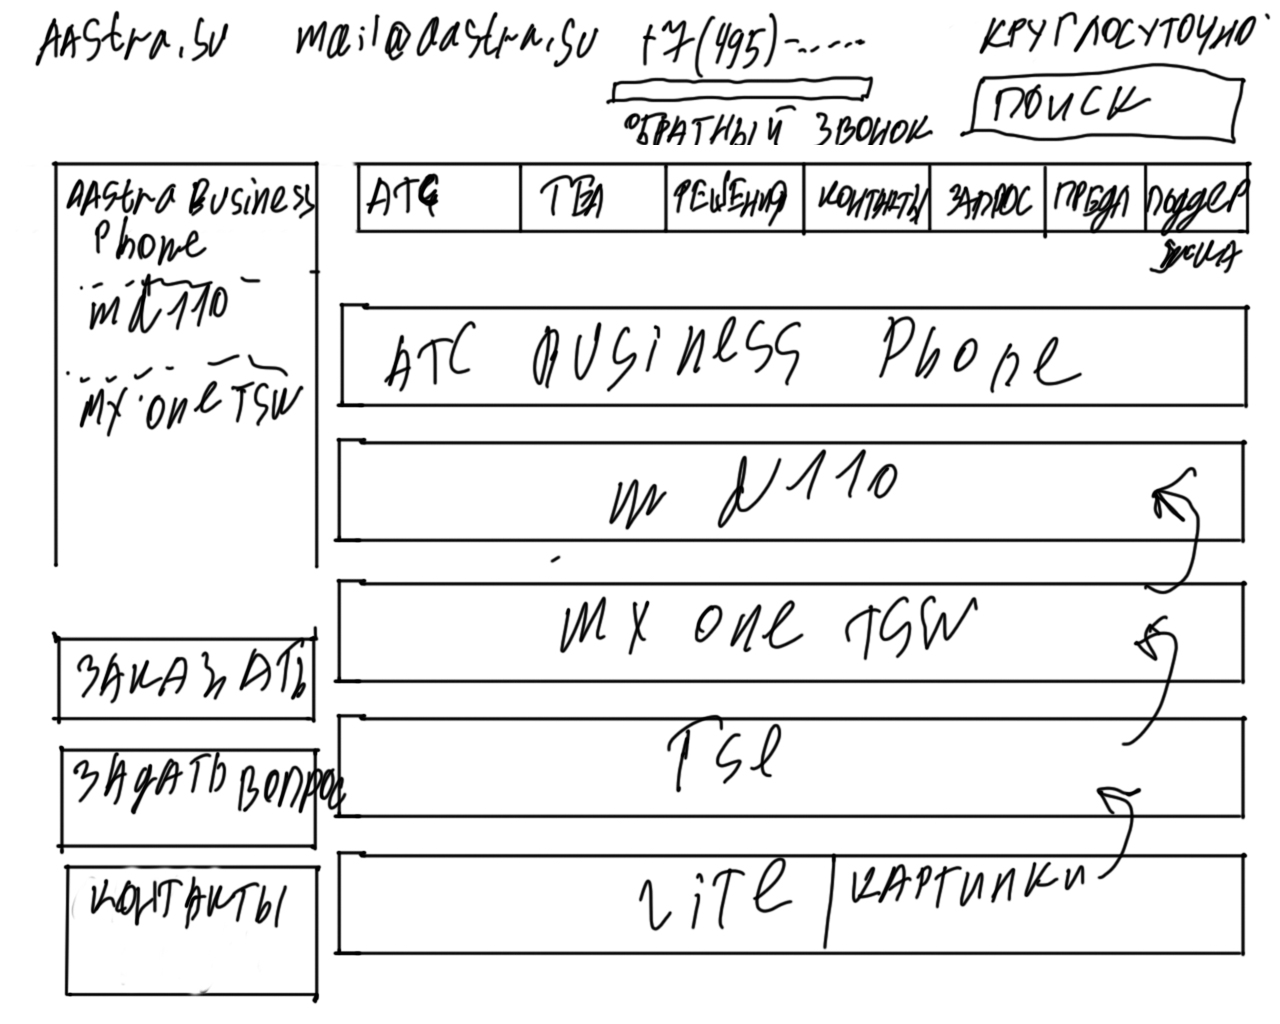 AAStra.SU mail@aastra.su +7(495)-...... КРУГЛОСУТОЧНО
ОБРАТНЫЙ ЗВОНОК
ПОИСК
AAStra Business
Phone
md110
MX one TSW
ЗАКАЗАТЬ
ЗАДАТЬ ВОПРОС
КОНТАКТЫ
АТС РЕШЕНИЯ КОНТАКТЫ ЗАПРОС ПРЕДЛ ПОДДЕР
ЖКА
АТС BUSiNeSS Phone
md110
MX one TSW
TSe
LiTe КАРТИНКИ